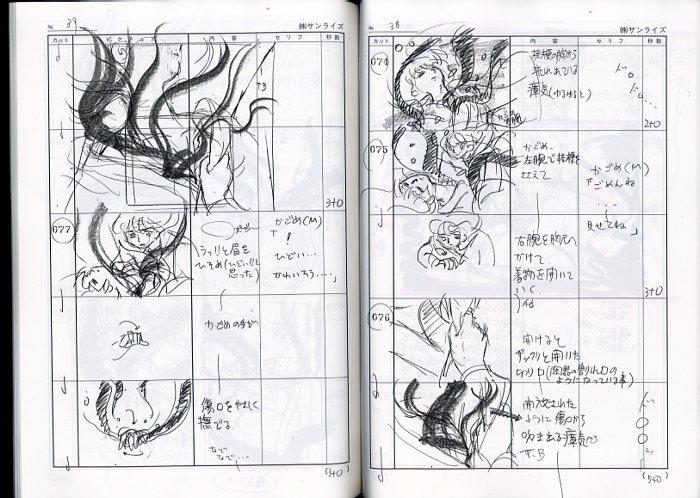 No 38
㈱サンライズ
カット
内容
セリフ
秒数
074
桔梗の胸から
流れ出ている
瘴気(ゆるゆると)
2+0
075
かごめ、
左腕で桔梗を
支えて
かごめ(M)
「ごめんね
...
見せてね」
右腕を胸元へ
かけて
着物を開いて
いく
3+0
076
開けると
ザックリと開いた
切り口(陶器の割れ口の
ようになっている事)
開放された
ように傷口から
吹き出る瘴気
T.B
(5+0)
No 39
㈱サンライズ
カット
ピクチュア
内容
セリフ
秒数
3+0
077
うっ!!と眉を
ひそめ(ひどい!!と
思った)
かごめ(M)
「!
ひどい...
かわいそう...」
かごめの手が
傷口をやさしく
撫でる
なで
なで...
(3+0)